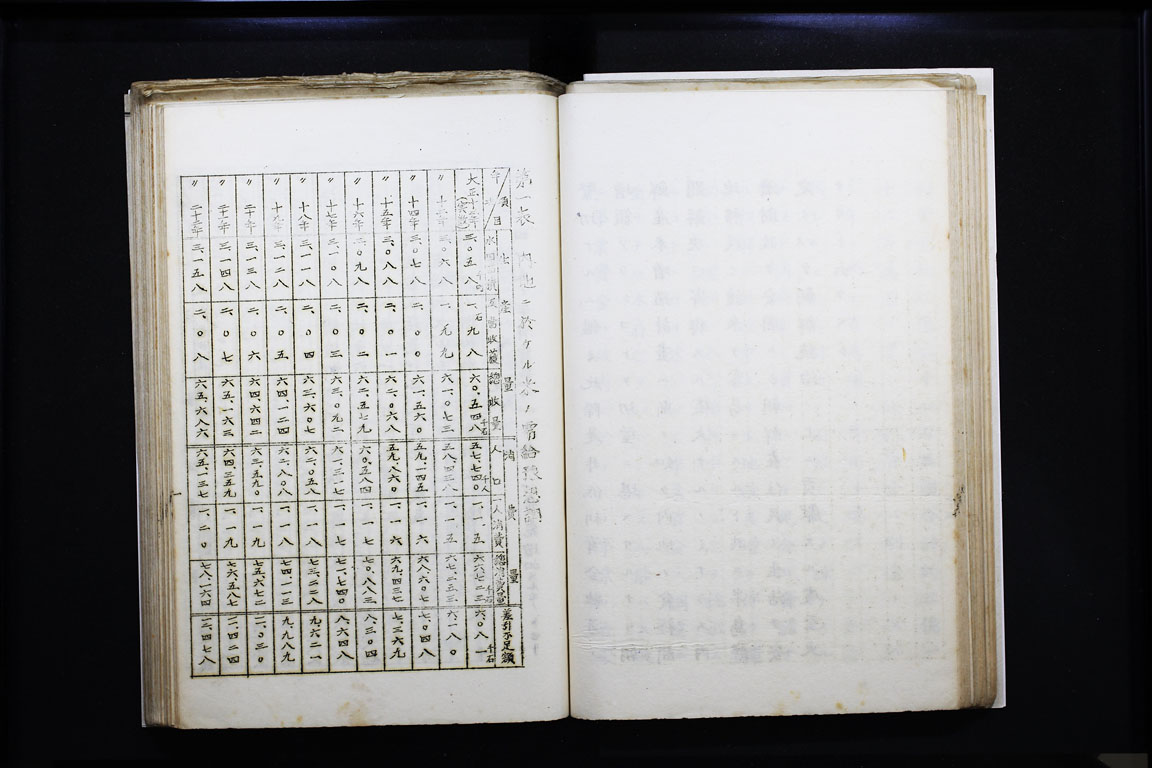 第一表 内地ニ於ケル米ノ需給豫想
年次/項目 生産量 反當收穫 總收量 消費量 人口 一人消費 總消費量 差引不足額
大正十二年 三、〇五八 一、九八石 六〇、五四八千石 五七、七四〇千人 一、一五 六、〇八一千石
〃 十三年 三、〇六八 一、九九 六一、〇七三 五八、四三八 一、一五 六七、二五三 六、一八〇
〃 十四年 三、〇七八 二、〇〇 六一、五六〇 五九、一四五 一、一六 六八、六〇八 七、〇四八
〃 十五年 三、〇八八 二、〇一 六二、〇六八 五九、八六〇 一、一六 六九、四三七 七、三六九
〃 十六年 三、〇九八 二、〇二 六二、五七九 六〇、五八四 一、一七 七〇、八八三 八、三〇四
〃 十七年 三、一〇八 二、〇三 六三、〇九二 六一、三一七 一、一七 七一、七四〇 八、六四八
〃 十八年 三、一一八 二、〇四 六三、六〇七 六二、〇五八 一、一八 七三、二二八 九、六二一
〃 十九年 三、一二八 二、〇五 六四、一二四 六二、八〇八 一、一八 七四、一一三 九、九八九
〃 二十年 三、一三八 二、〇六 六四、六四二 六三、五九〇 一、一九 七五、六七二 一一、〇三〇
〃 二十一年 三、一四八 二、〇七 六五、一六三 六四、三五九 一、一九 七六、五八七 一一、四二四
〃 二十二年 三、一五八 二、〇八 六五、六八六 六五、一三七 一、二〇 七八、一六四 一二、四七八